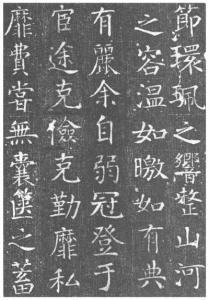 節環珮之響整山河
之容溫如曒如有典
有麗余自弱冠登于
宦途克儉克勤靡私
靡費訾無囊篋之蓄